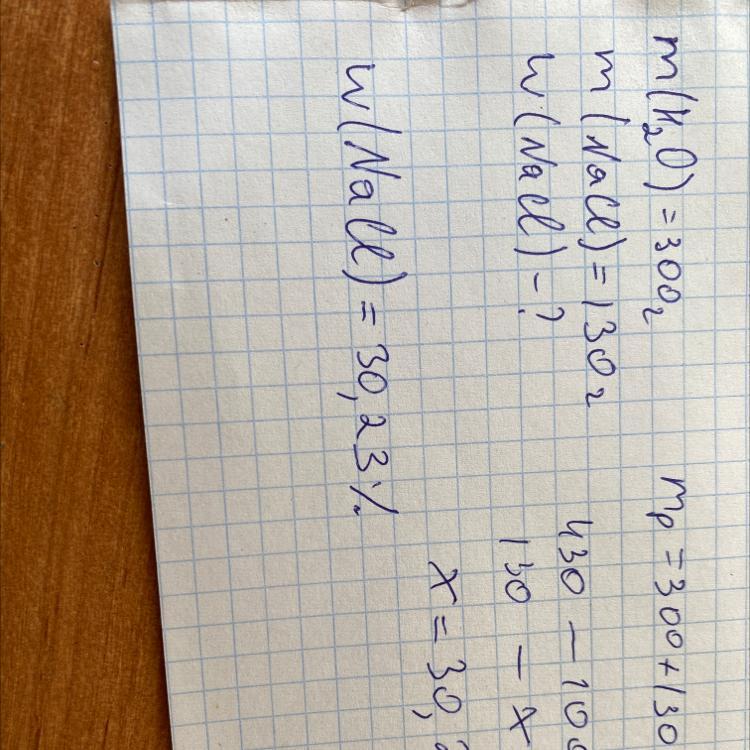 m(H₂O) = 300г
m(NaCl) = 130г
w(NaCl) - ?
w(NaCl) = 30,23%
mр = 300 + 130
430 — 100
130 — x
x = 30,2